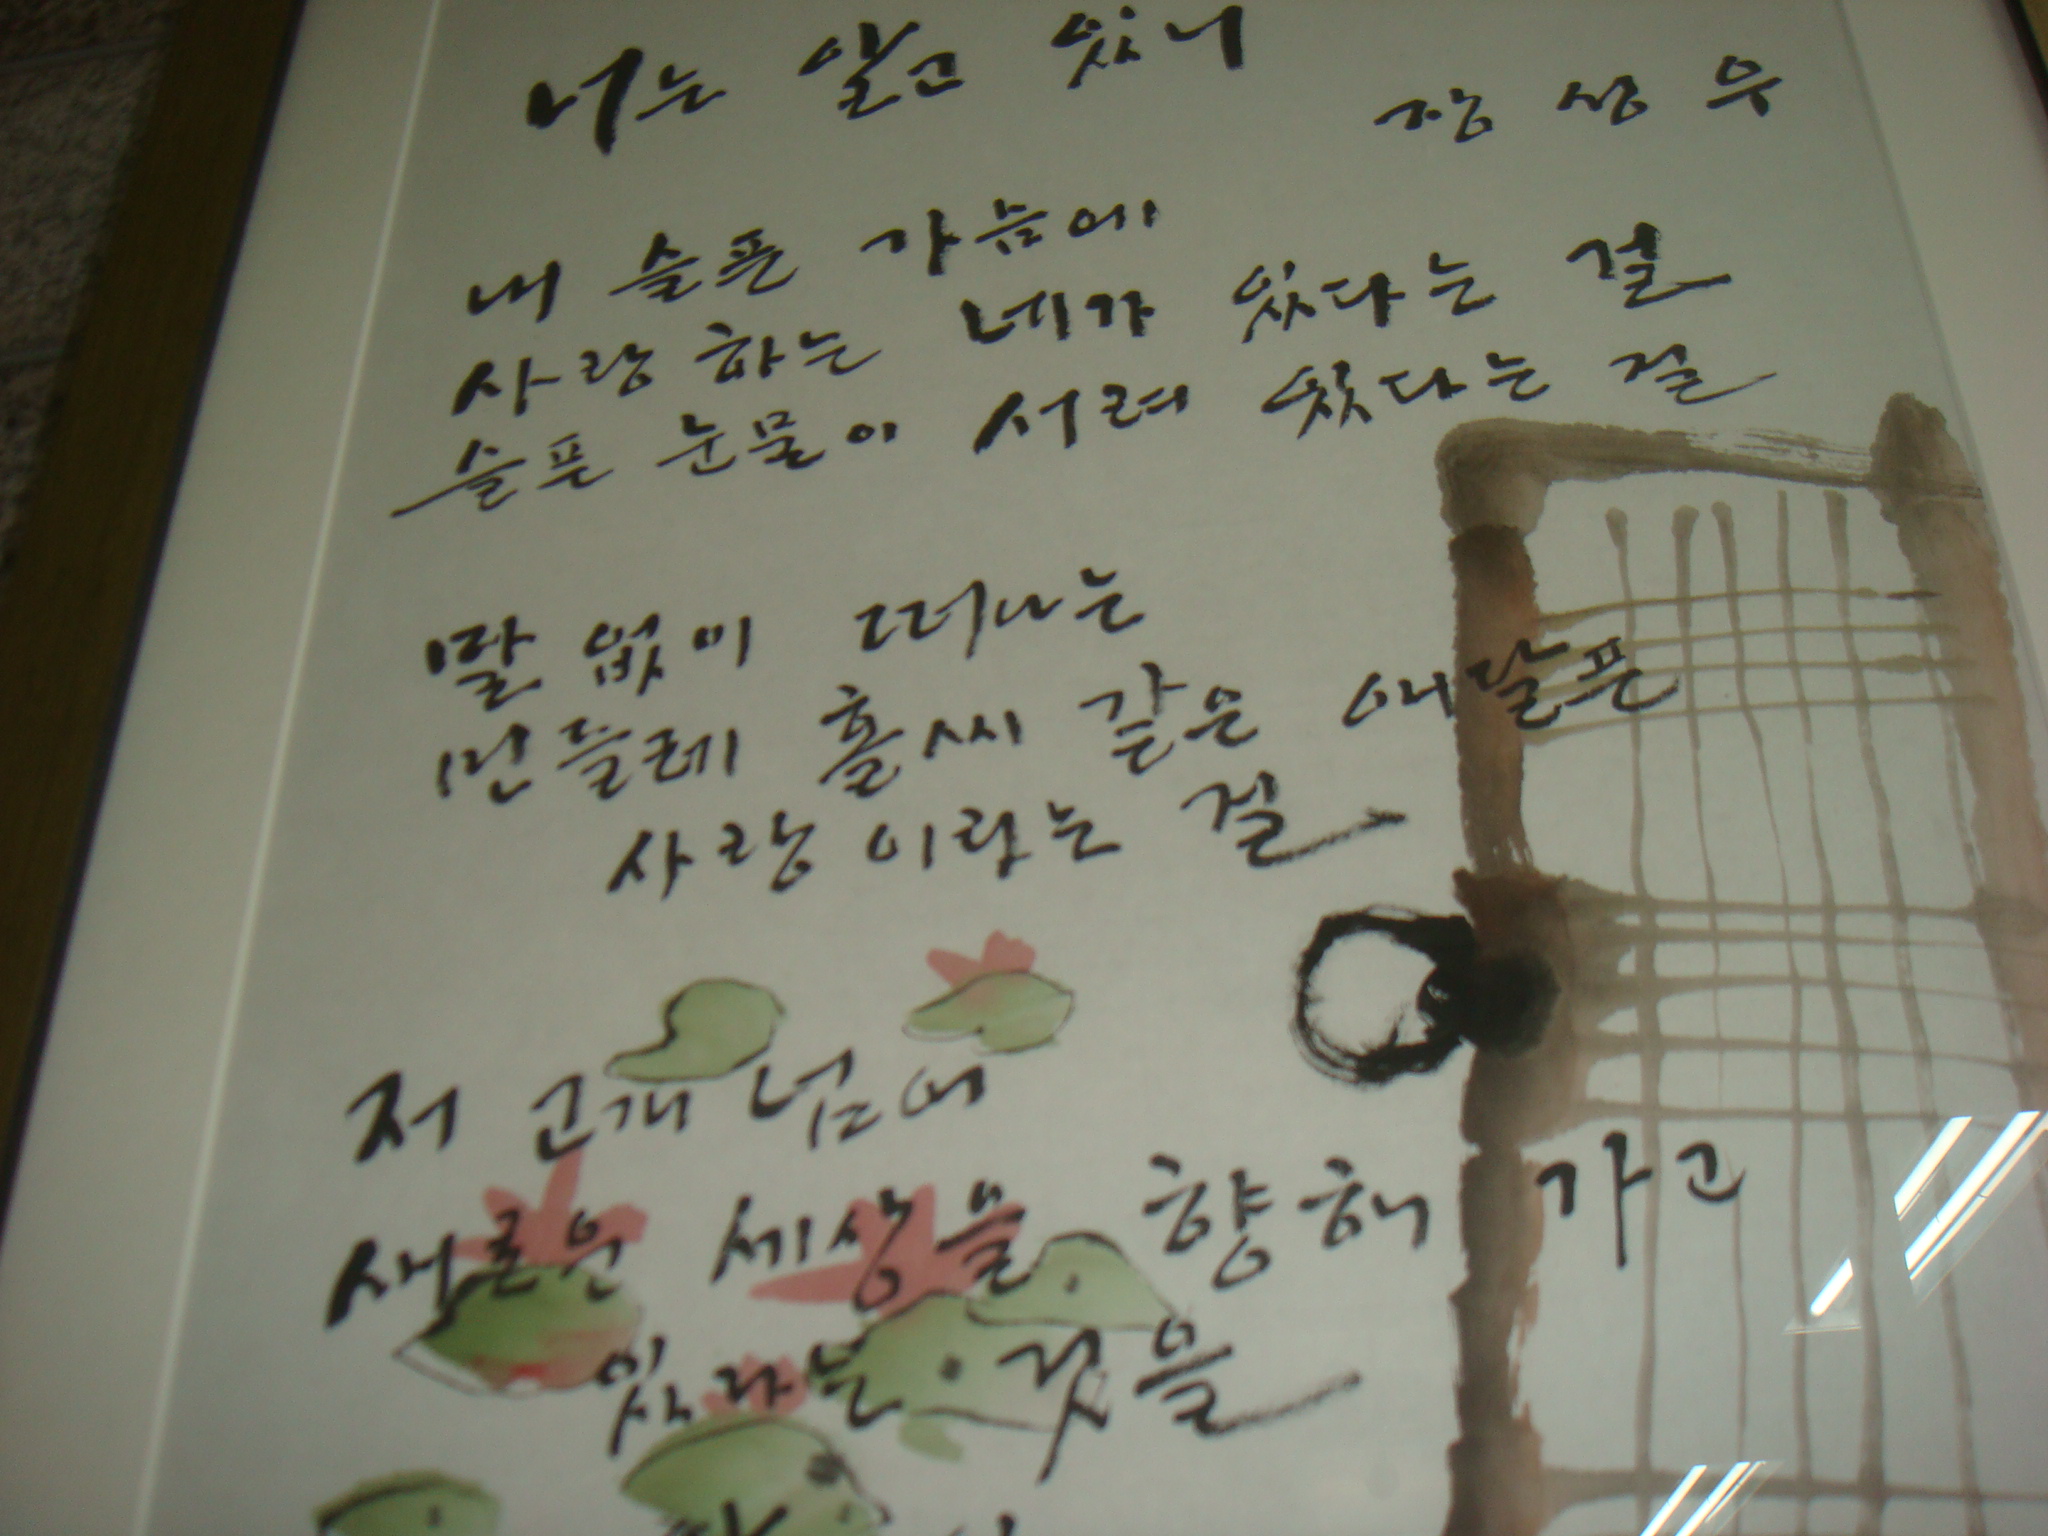 너는 알고 있니
장 상 우
내 슬픈 가슴에
사랑하는 네가 있다는 걸
슬픈 눈물이 서려 있다는 걸
말 없이 떠나는
민들레 홀씨 같은 애달픈
사랑이라는 걸
저 고개 넘어
새로운 세상을 향해 가고
있다는 것을